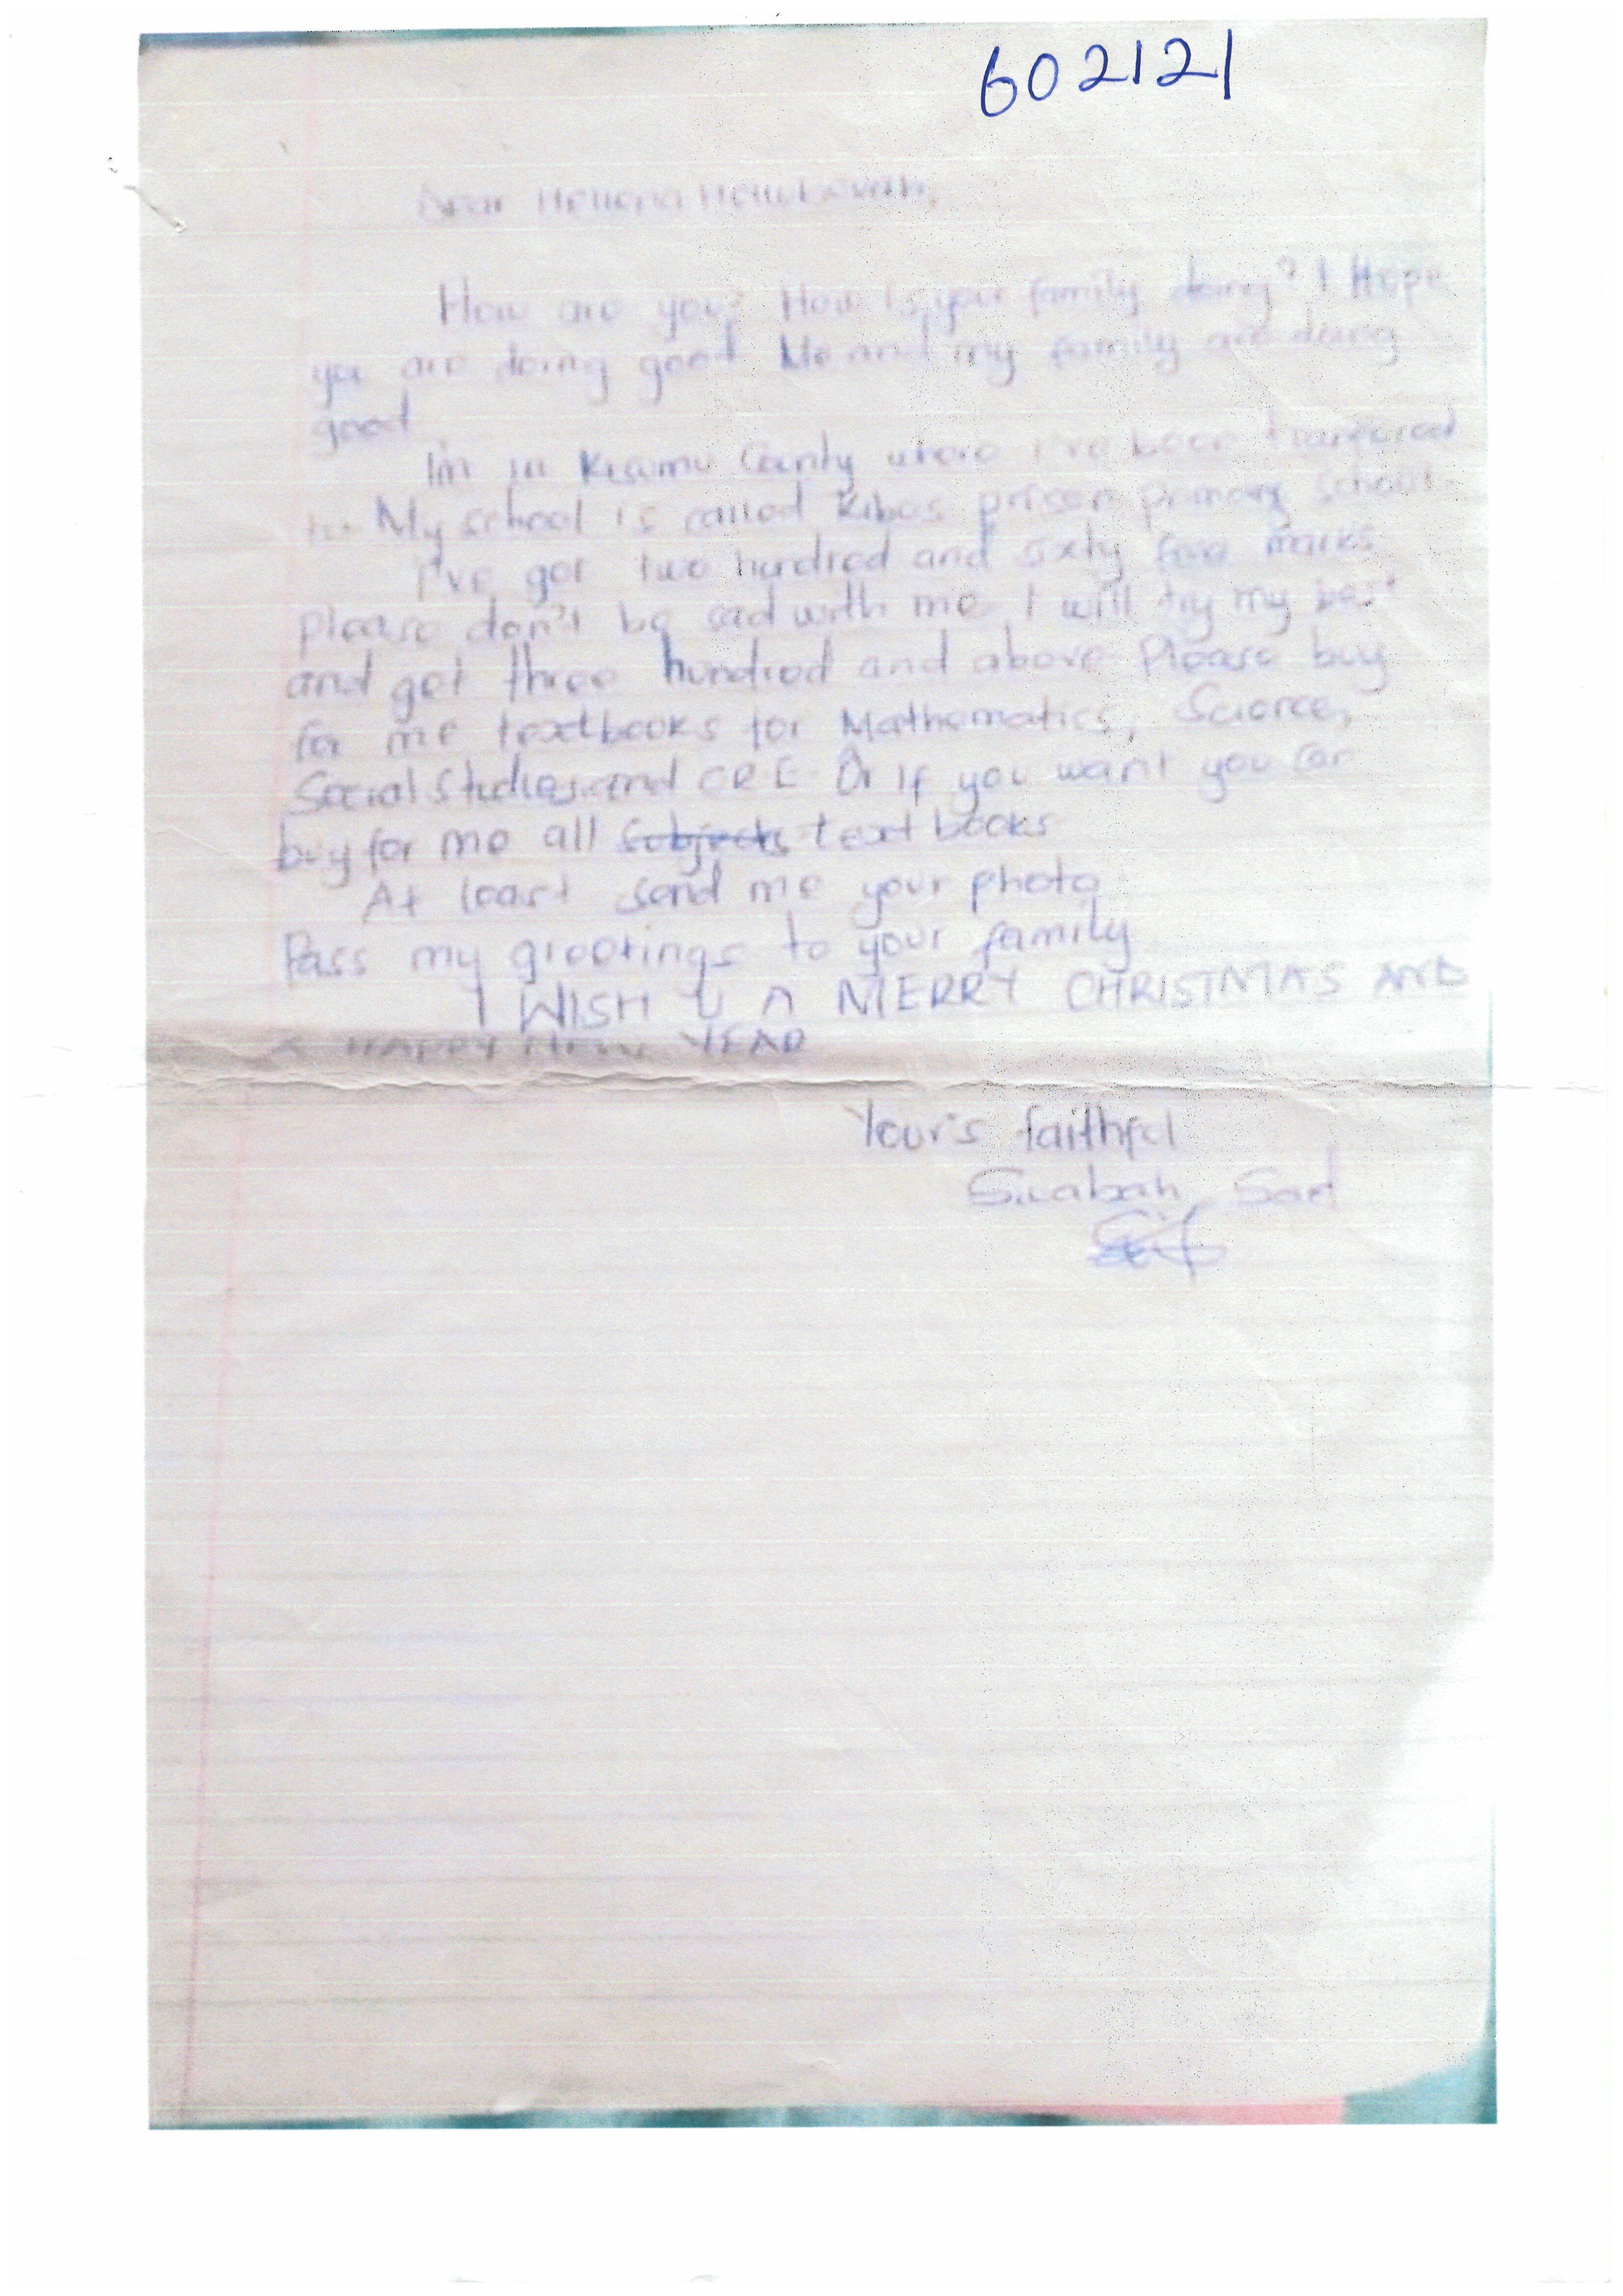 602121
Dear
How are you? How is your family doing? I Hope
you are doing good. Me and my family are doing
good.
I'm in Kisumu County where I've been transfered
to. My school is called Kibos prison primary school.
I've got two hundred and sixty five marks
please don't be sad with me. I will try my best
and get three hundred and above. Please buy
for me textbooks for Mathematics, Science,
Social Studies and CRE. Or if you want you can
buy for me all subjects text books
At least send me your photo
Pass my greetings to your family
I WISH U A MERRY CHRISTMAS AND
A HAPPY NEW YEAR
Your's faithful